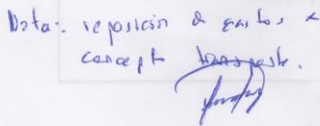 Nota: reposición de gastos x
concepto transporte.